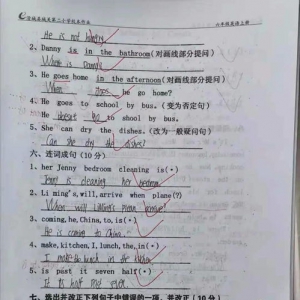 六年级英语上册
He is not hungry.
2、Danny is in the bathroom(对画线部分提问)
Where is Danny?
3、He goes home in the afternoon(对画线部分提问)
When does he go home?
4、He goes to school by bus.(变为否定句)
He doesn't go to school by bus.
5、She can dry the dishes.(改为一般疑问句)
Can she dry the dishes?
六、连词成句(10分)
1.her Jenny bedroom cleaning is(.)
Jenny is cleaning her bedroom.
2.Li ming's,will,arrive when plane(?)
When will LiMing's plane
3、coming,he,China,to,is(.)
He is coming to China.
4、make,kitchen,I,lunch,the,in(.)
I make the lunch in the kitchen
5、is past it seven half(.)
It is half past seven.
七、挑出并改正下列句子中错误的一项，并改正(10分)